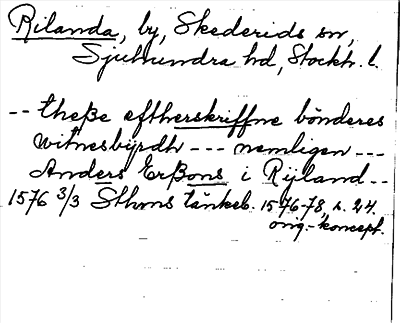 Rilanda, by, Skederids sn,
Sjuhundra hd, Stockh. l.
-- theße eftherskriffne bönderes
witnesbyrdh --- nemligen ---
Anders Erßons i Rijland --
1576 3/3 Sthms tänkeb. 1576-78, s. 24.
orig.-koncept.